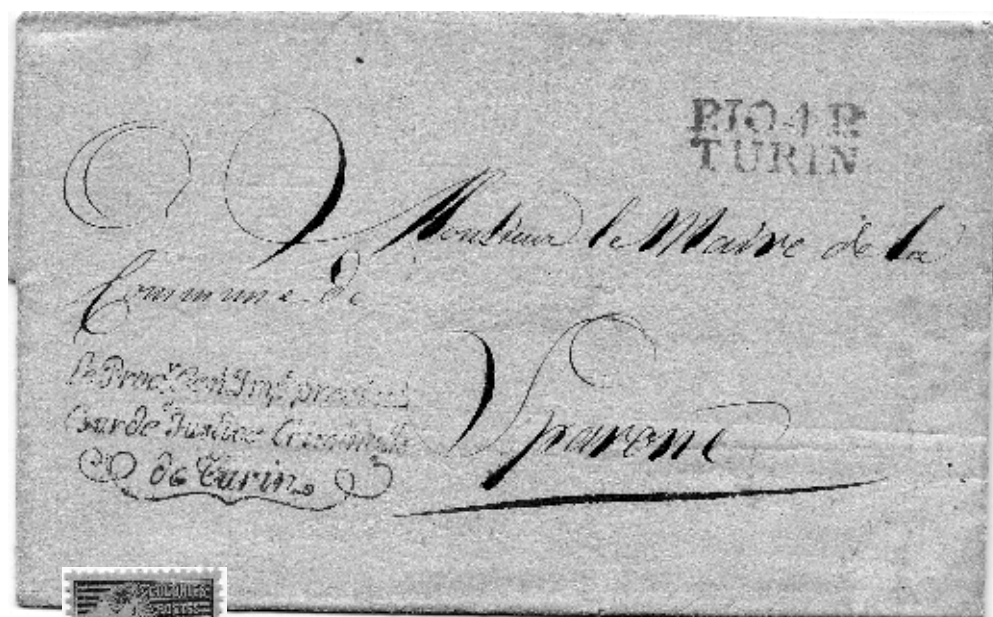 P.104.P.
TURIN
Monsieur le Maire de la
Commune de
Le Proc.r Gen.l Imp.l près la
Cour de Justice Criminelle
de Turin
Sparone